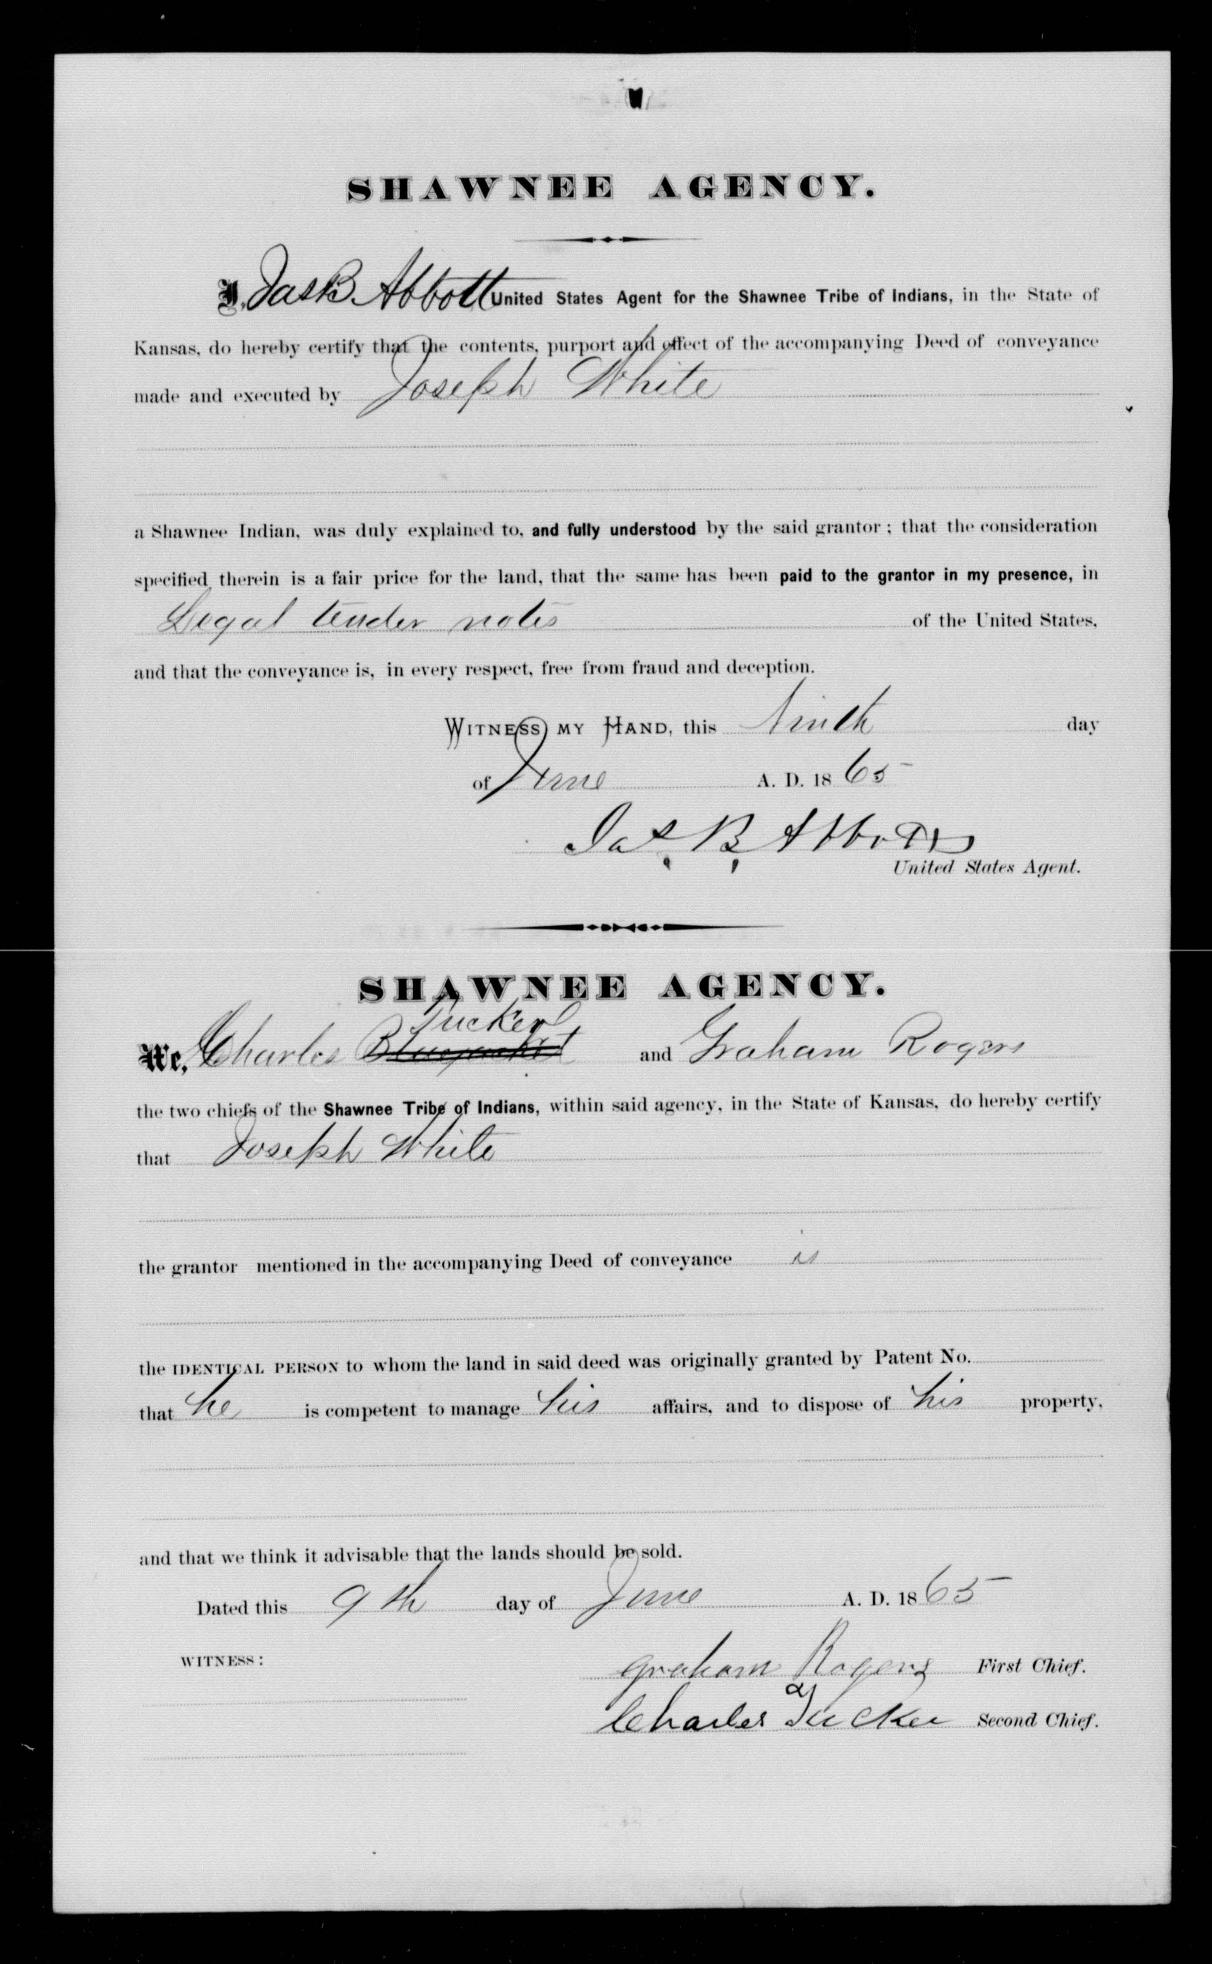 SHAWNEE AGENCY.
I, Jas B Abbott United States Agent for the Shawnee Tribe of Indians, in the State of
Kansas, do hereby certify that the contents, purport and effect of the accompanying Deed of conveyance
made and executed by Joseph White
a Shawnee Indian, was duly explained to, and fully understood by the said grantor; that the consideration
specified therein is a fair price for the land, that the same has been paid to the grantor in my presence, in
Legal tender notes of the United States,
and that the conveyance is, in every respect, free from fraud and deception.
WITNESS MY HAND, this Ninth day
of June A. D. 1865
Jas. B. Abbott
United States Agent.
SHAWNEE AGENCY.
Tucker
We, Charles Bluejacket and Graham Rogers
the two chiefs of the Shawnee Tribe of Indians, within said agency, in the State of Kansas, do hereby certify
that Joseph White
the grantor mentioned in the accompanying Deed of conveyance is
the IDENTICAL PERSON to whom the land in said deed was originally granted by Patent No.
that he is competent to manage his affairs, and to dispose of his property,
and that we think it advisable that the lands should be sold.
Dated this 9th day of June A. D. 1865
WITNESS: Graham Rogers First Chief.
Charles Tucker Second Chief.